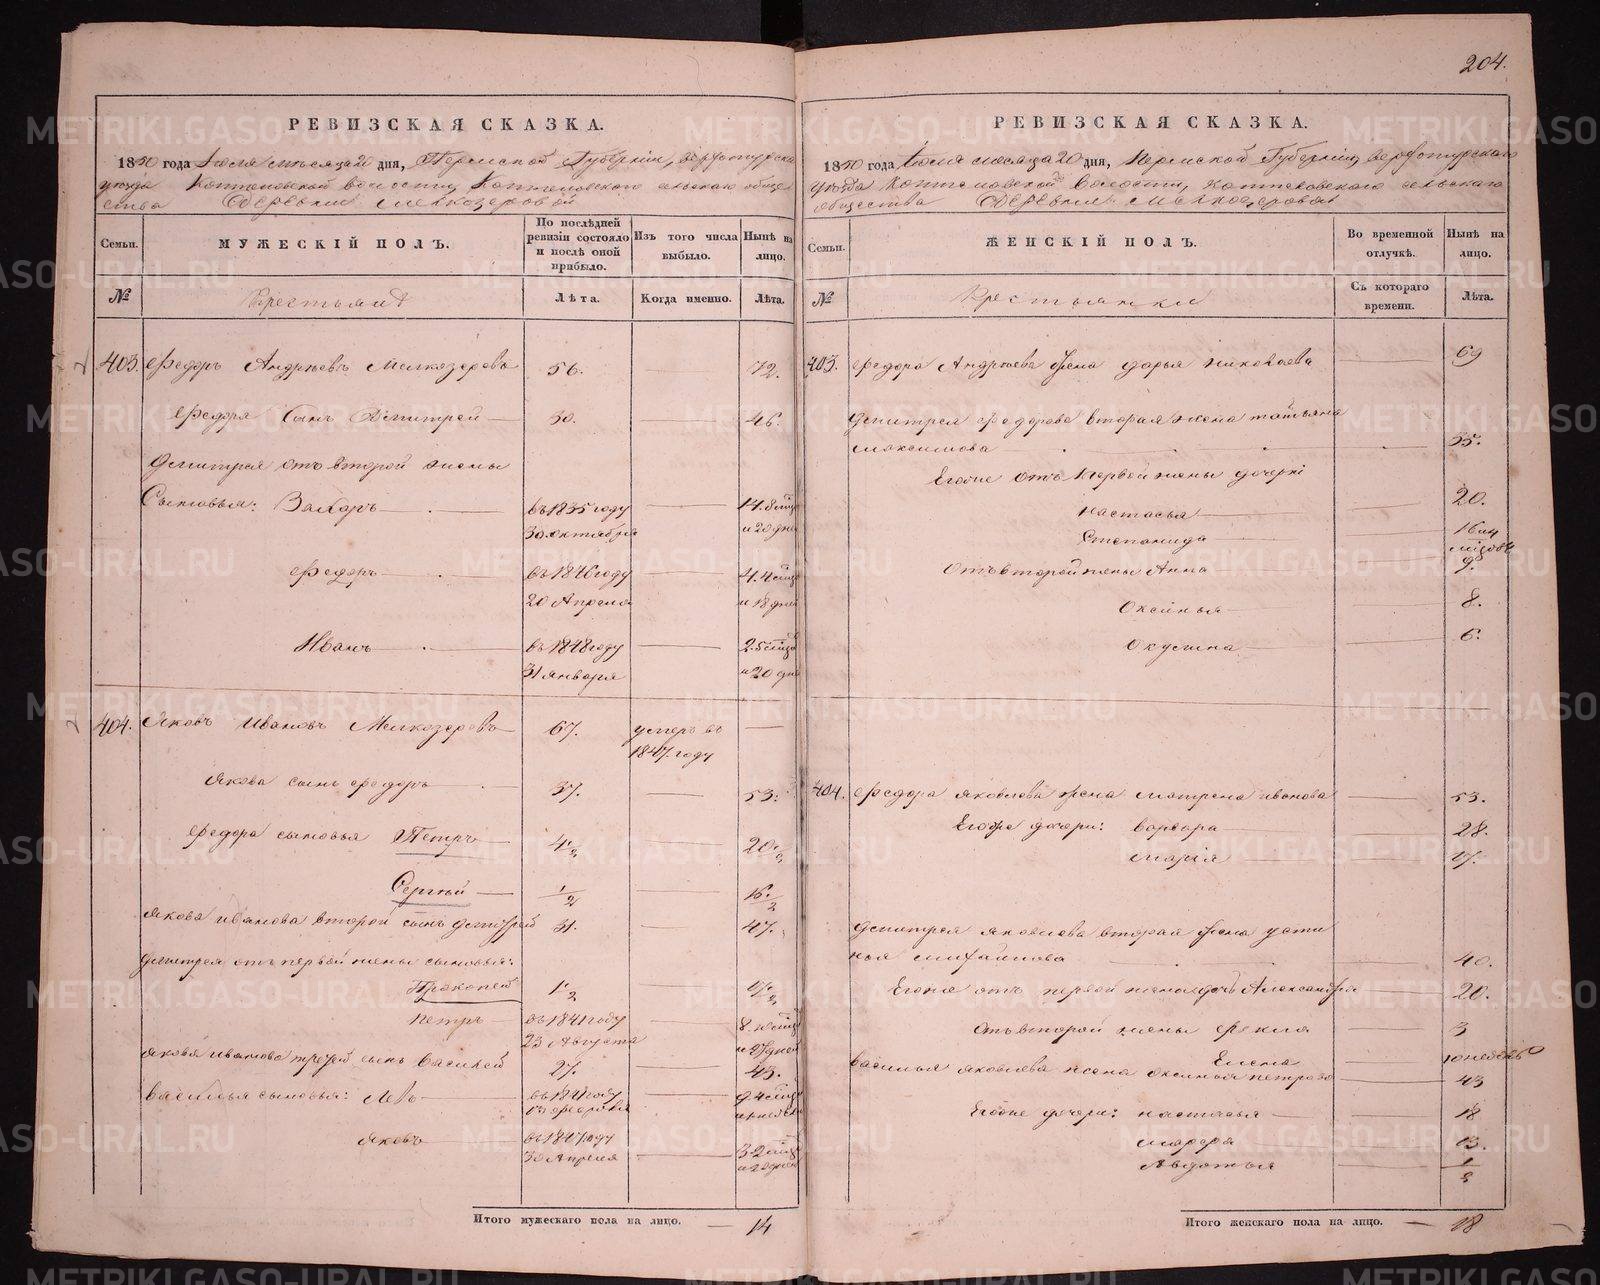 204.
РЕВИЗСКАЯ СКАЗКА.
1850 года Июля месяца 20 дня, Пермской Губернии, Верхотурска
уезда Коптеловской волости, Коптеловского сельскаго обще
ства Деревни Мелкозеровой
Семьи. МУЖЕСКІЙ ПОЛЪ. По послѣдней ревизіи состояло и послѣ оной прибыло. Изъ того числа выбыло. Нынѣ на лицо.
№ Крестьяне Лѣта. Когда именно. Лѣта.
403. Федоръ Андреевъ Мелкозеровъ 56. 72.
Федора сынъ Дмитрей 30. 46.
Дмитрея отъ второй жены
Сыновья: Захаръ въ 1835 году 14. 8 мцов
30 октября и 20 дне
Федоръ въ 1846 году 4. 4 мца
20 Апреля и 18 дней
Иванъ въ 1848 году 2. 5 мцов
31 января и 20 дне
404. Яковъ Ивановъ Мелкозеровъ 67. умеръ въ
1847. году
Якова сынъ Федоръ 37. 53.
Федора сыновья Петръ 4 1/2 20 1/2
Сергѣй 1/2 16 1/2
Якова Иванова второй сынъ Дмитрей 31. 47.
Дмитрея отъ первой жены сыновья:
Прокопей 1 1/2 17 1/2
Петръ въ 1841 году 8. 10 мцов
23 Августа и 27 дней
Якова Иванова третей сынъ Василей 27. 43.
Василья сыновья: Левъ въ 1841 году 9. 4 мца
17 февраля
Яковъ въ 1847 году 3. 2 мца
30 Апреля и 20 дней
Итого мужескаго пола на лицо. — 14
РЕВИЗСКАЯ СКАЗКА.
1850 года Июля месяца 20 дня, Пермской Губернии, Верхотурскаго
уезда Коптеловской волости, Коптеловскаго сельскаго
общества Деревни Мелкозеровой
Семьи. ЖЕНСКІЙ ПОЛЪ. Во временной отлучкѣ. Нынѣ на лицо.
№ Крестьянки Съ котораго времени. Лѣта.
403. Федора Андреева жена Дарья Николаева 69
Дмитрея Федорова вторая жена Татьяна
Максимова 35.
Егоже отъ первой жены дочери
Настасья 20.
Степанида 16 и 4
мцовъ
Отъ второй жены Анна 9.
Оксинья 8.
Окулина 6.
404. Федора Яковлева жена Матрена Иванова 53.
Егоже дочери: Варвара 28.
Марія 17.
Дмитрея Яковлева вторая жена Усти
нья Михайлова 40.
Егоже отъ первой жены дочь Александра 20.
отъ второй жены Фекла 3
Елена 10 недель
Василья Яковлева жена Оксинья Петрова 43
Егоже дочери: Настасья 18
Марфа 13.
Авдотья 1/2
Итого женскаго пола на лицо. — 18